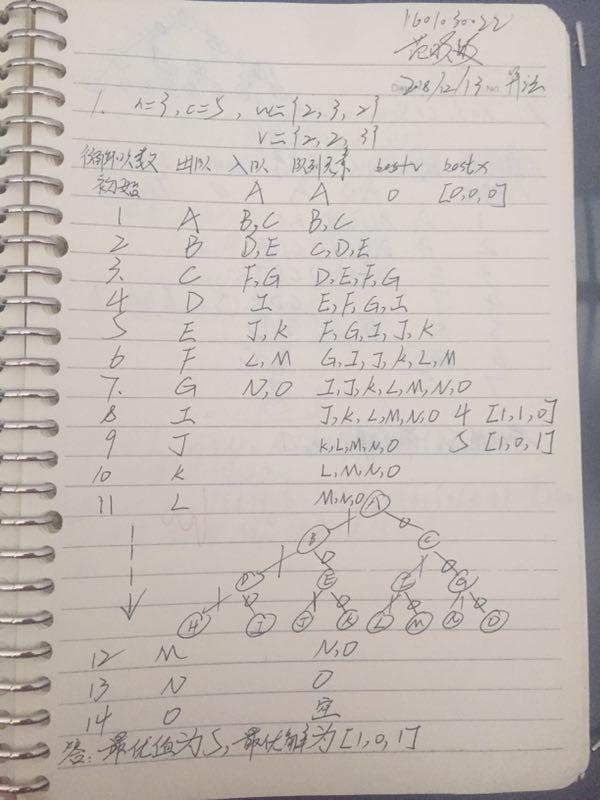 1601030022
2018/12/13 算法
1. n=3, c=5, w={2, 3, 2}
v={2, 2, 3}
循环次数 出队 入队 队列元素 bestv bestx
初始 A A 0 [0,0,0]
1 A B,C B,C
2 B D,E C,D,E
3. C F,G D,E,F,G
4 D I E,F,G,I
5 E J,K F,G,I,J,K
6 F L,M G,I,J,K,L,M
7. G N,O I,J,K,L,M,N,O
8 I J,K,L,M,N,O 4 [1,1,0]
9 J K,L,M,N,O 5 [1,0,1]
10 K L,M,N,O
11 L M,N,O
A
1 0
B C
1 0 1 0
D E F G
1 0 1 0 1 0 1 0
H I J K L M N O
12 M N,O
13 N O
14 O 空
答:最优值为5,最优解为[1,0,1]